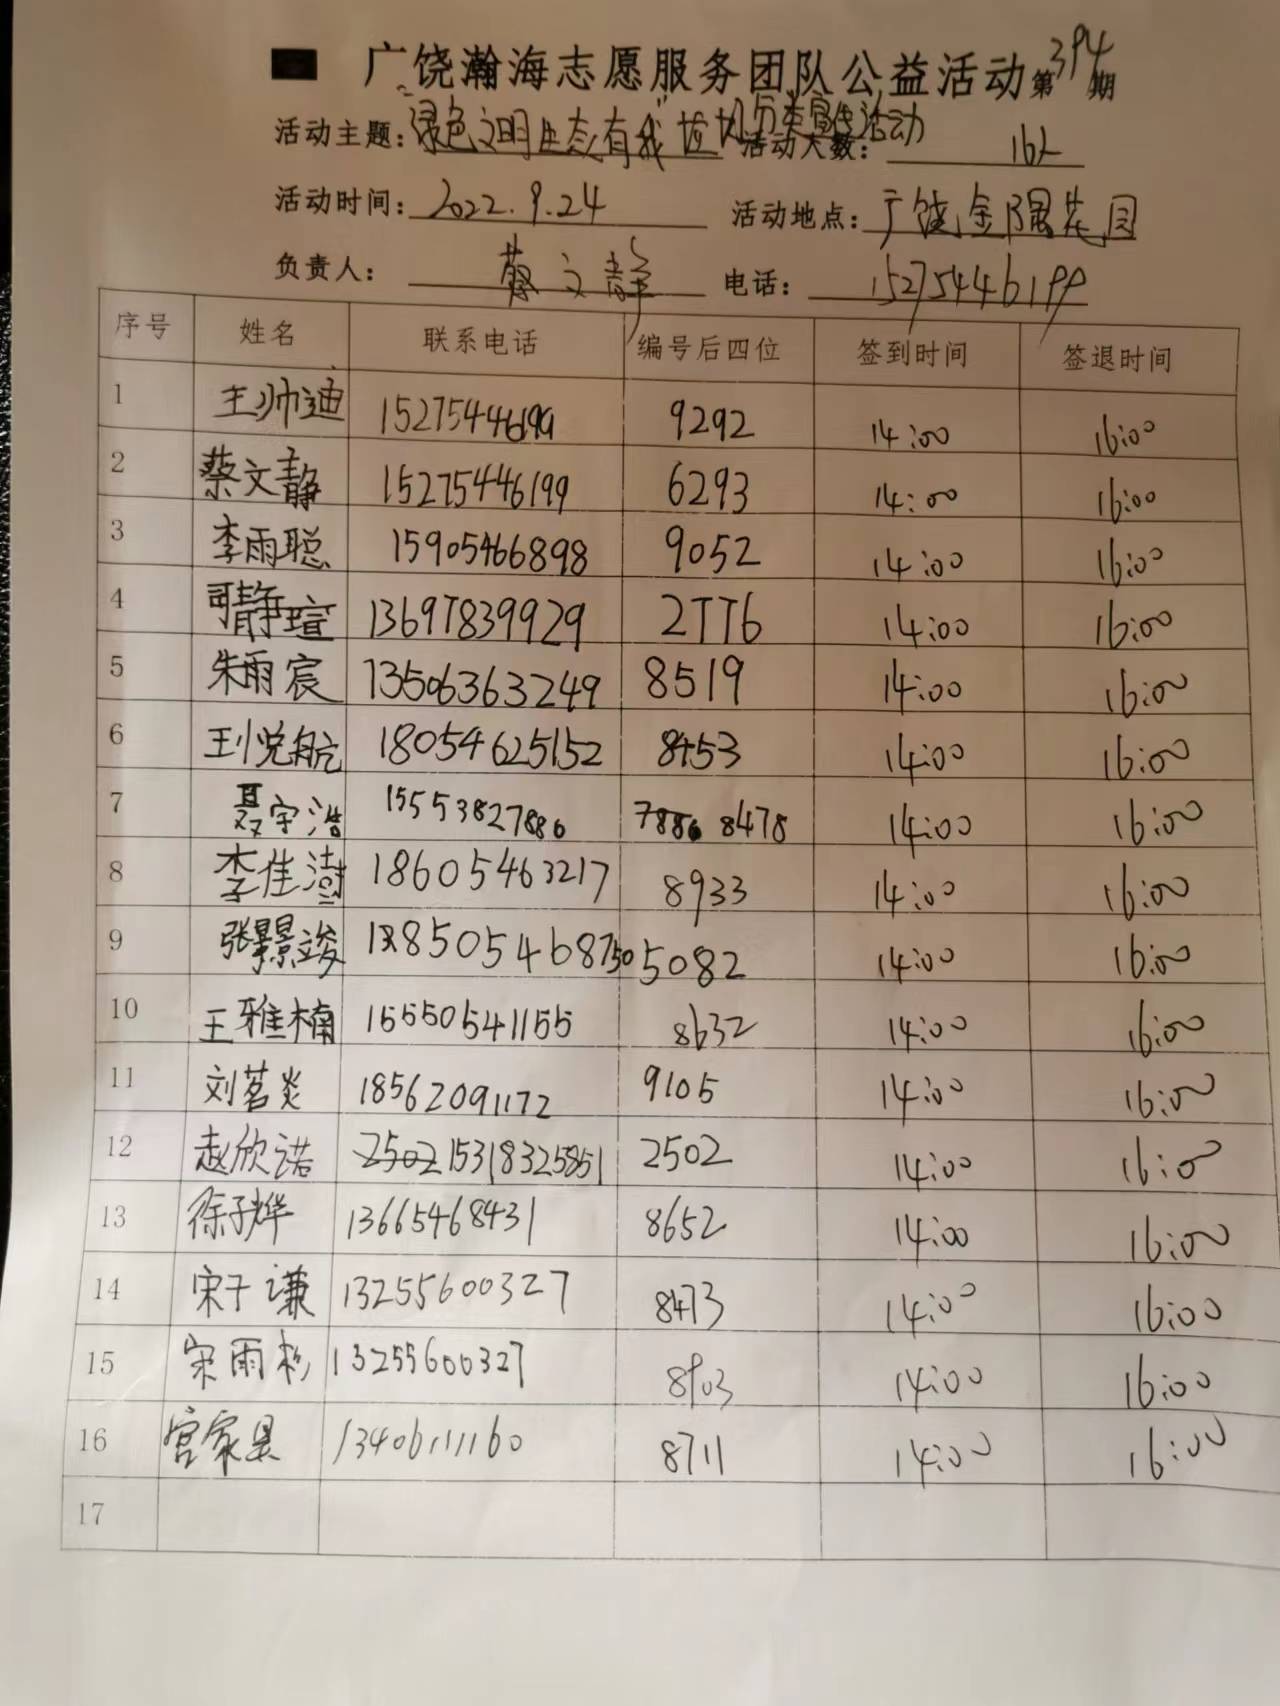 广饶瀚海志愿服务团队公益活动第394期
活动主题:"绿色文明生态有我"垃圾分类宣传活动 活动人数: 16人
活动时间: 2022.9.24 活动地点: 广饶金隅花园
负责人: 蔡文静 电话: 15275446199
序号 姓名 联系电话 编号后四位 签到时间 签退时间
1 王帅迪 15275446199 9292 14:00 16:00
2 蔡文静 15275446199 6293 14:00 16:00
3 李雨聪 15905466898 9052 14:00 16:00
4 静瑄 13697839929 2776 14:00 16:00
5 朱雨宸 13506363249 8519 14:00 16:00
6 王悦航 18054625152 8453 14:00 16:00
7 聂宇浩 15553827886 7886 8478 14:00 16:00
8 李佳澍 18605463217 8933 14:00 16:00
9 张景竣 18505468750 5082 14:00 16:00
10 王雅楠 15550541155 8632 14:00 16:00
11 刘茗炎 18562091172 9105 14:00 16:00
12 赵欣诺 2502 15318325851 2502 14:00 16:00
13 徐子烨 13665468431 8652 14:00 16:00
14 宋子谦 13255600327 8473 14:00 16:00
15 宋雨杉 13255600327 8903 14:00 16:00
16 宫家 13406111160 8711 14:00 16:00
17